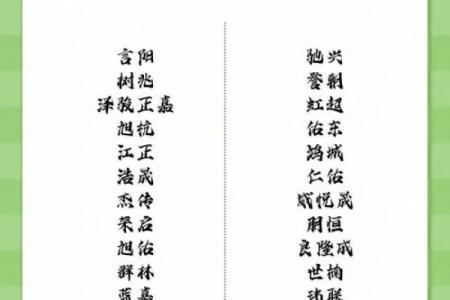 言阳
树兆
泽骏正嘉
旭杭
江正
浩晟
杰传
荣启
旭佑
群林
蓝嘉
驰兴
誉朝
虹超
佑东
鸿城
仁佑
成悦晟
朋恒
良隆成
世楠